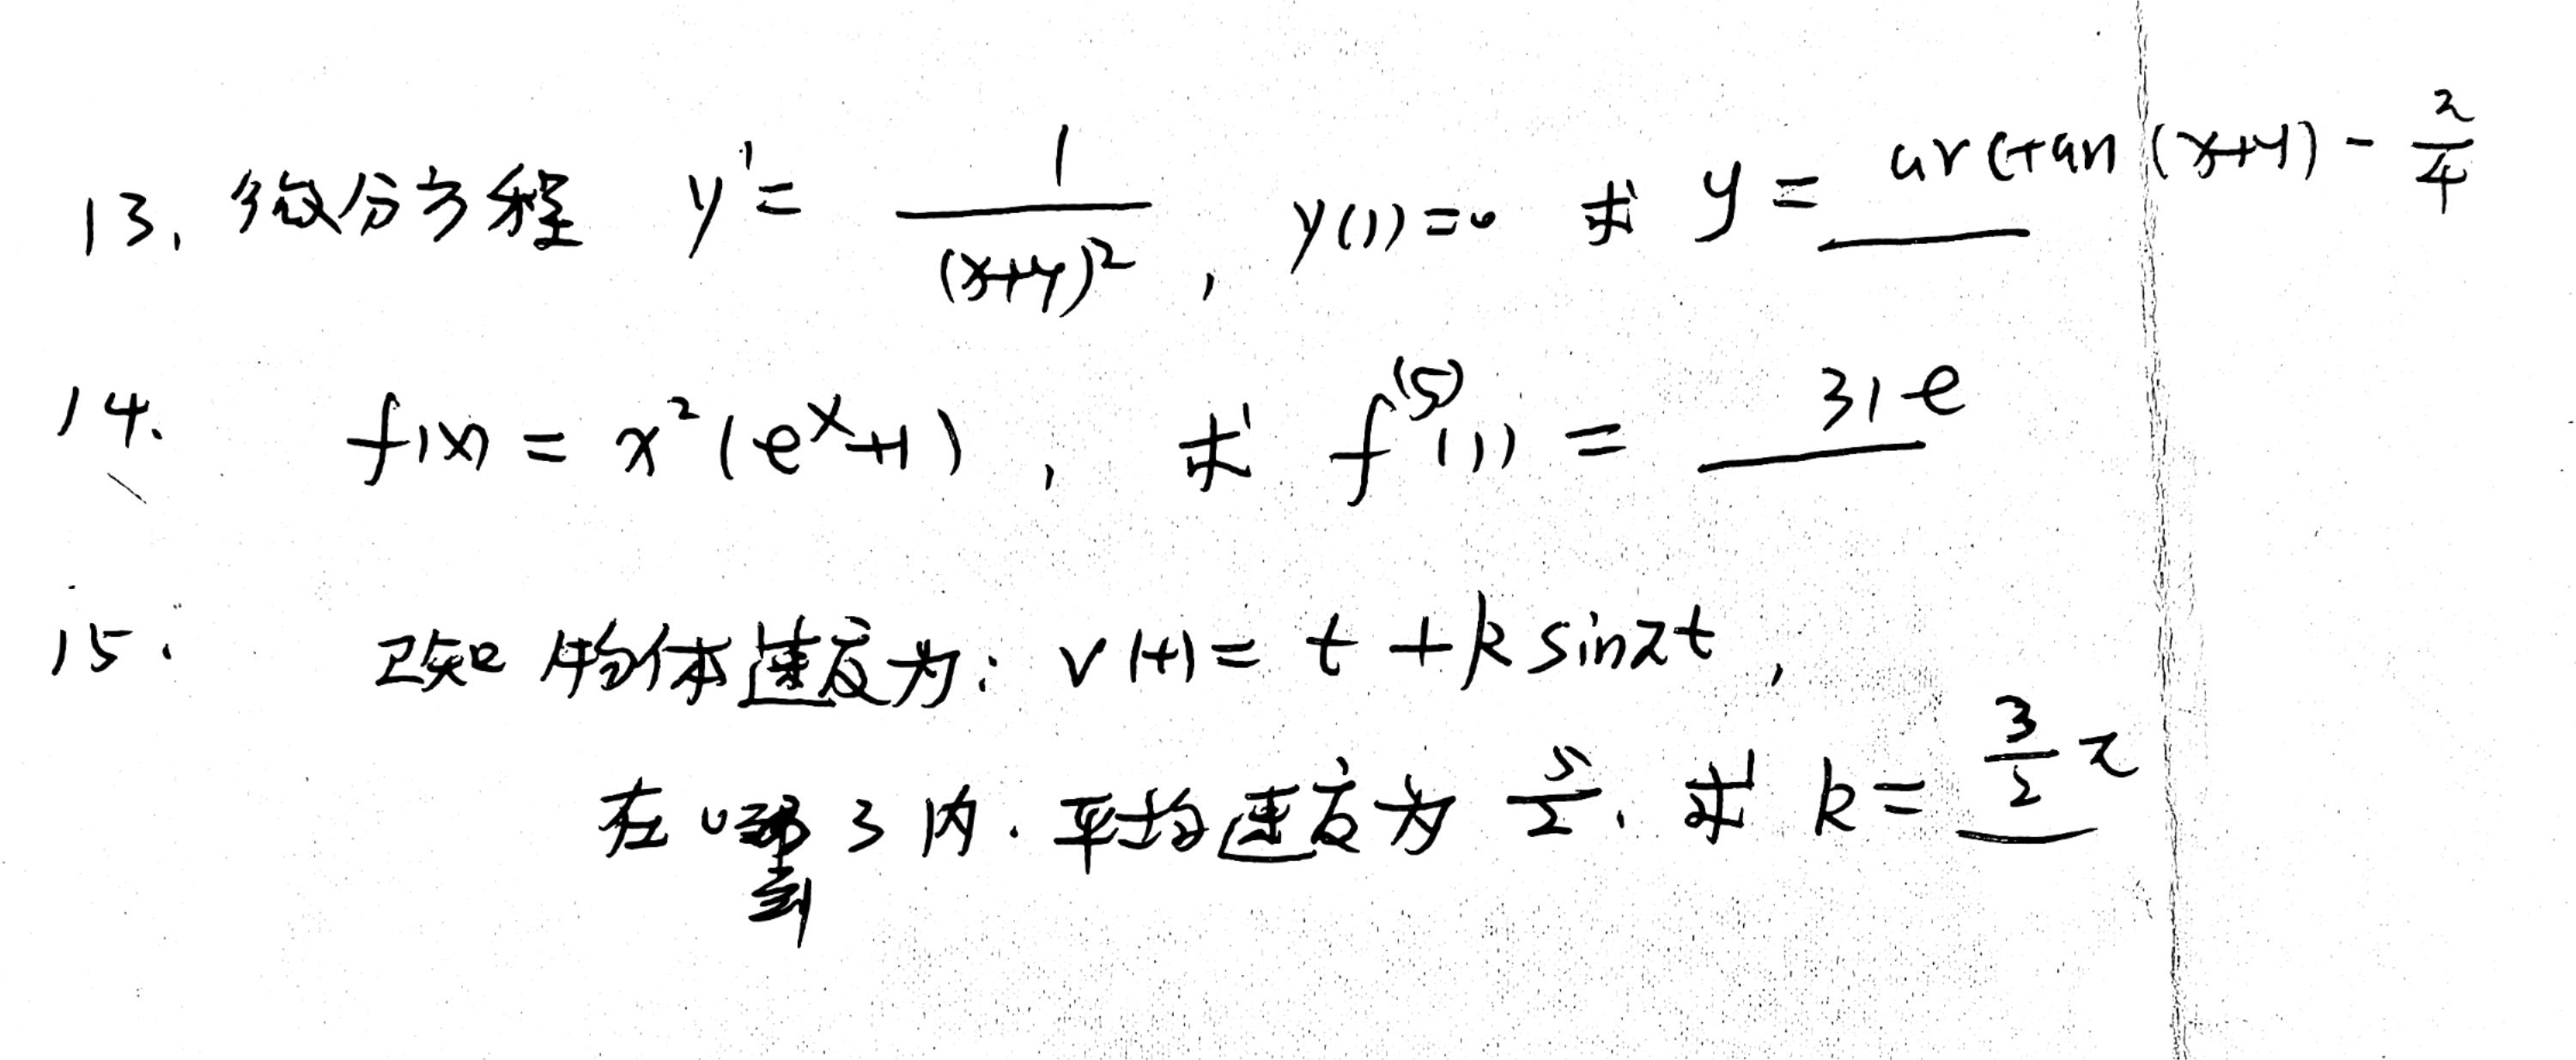 13. 微分方程 y' = 1/(x+y)², y(1)=0 求 y = arctan(x+y) - π/4
14. f(x) = x²(eˣ+1), 求 f⁽⁵⁾(1) = 31e
15. 已知物体速度为: v(t) = t + k sinπt,
在 0到 3 内. 平均速度为 5/2. 求 k = 3/2 π